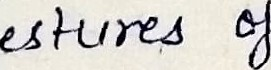 estures of